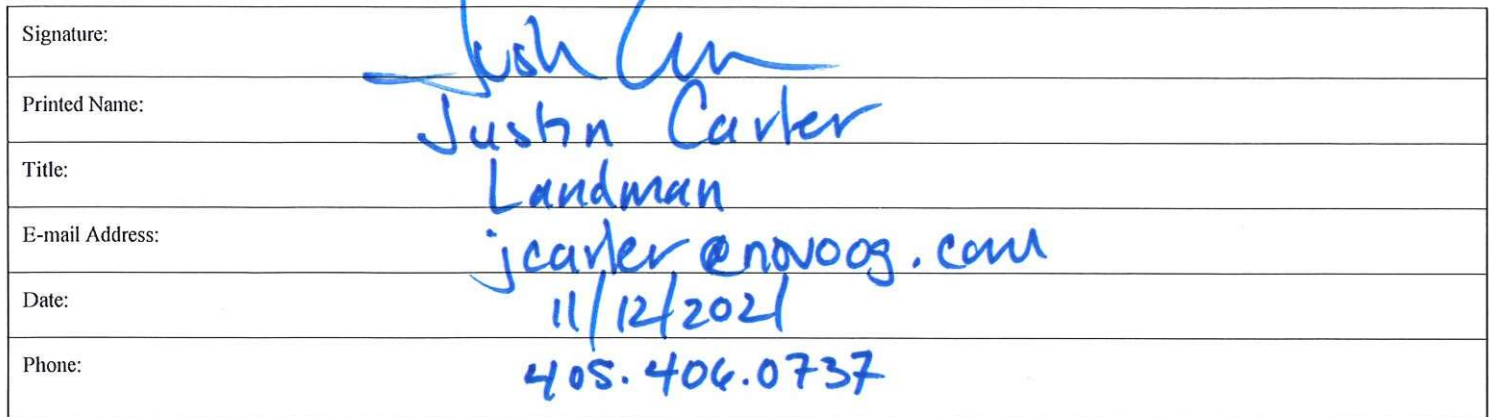 Signature:
Printed Name: Justin Carter
Title: Landman
E-mail Address: jcarter@novoog.com
Date: 11/12/2021
Phone: 405.406.0737